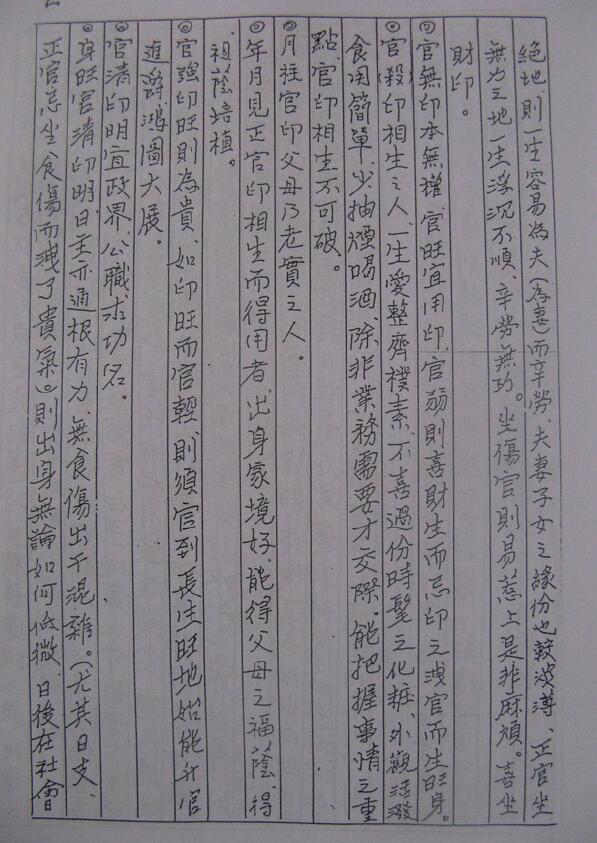 絕地,則一生容易為夫(為妻)而辛勞、夫妻子女之緣份也較波薄、正官坐
無力之地一生浮沉不順、辛勞無功。坐傷官則易惹上是非麻煩。喜坐
財印。
◎官無印本無權、官旺宜用印、官弱則喜財生而忌印之洩官而生旺身。
◎官(殺)印相生之人、一生愛整齊樸素、不喜過份時髦之化粧、外觀活潑
食用簡單、少抽煙喝酒、除非業務需要才交際、能把握事情之重
點、官印相生不可破。
◎月柱官印父母乃老實之人。
◎年月見正官印相生而得用者、出身家境好、能得父母之福蔭、得
祖蔭培植。
◎官強印旺則為貴、如印旺而官輕、則須官到長生旺地始能升官
進爵鴻圖大展。
◎官清印明宜政界、公職、求功名。
◎身旺官清印明、日主亦通根有力、無食傷出干混雜。(尤其日支、
正官忌坐食傷而洩了貴氣。)則出身無論如何低微、日後在社會